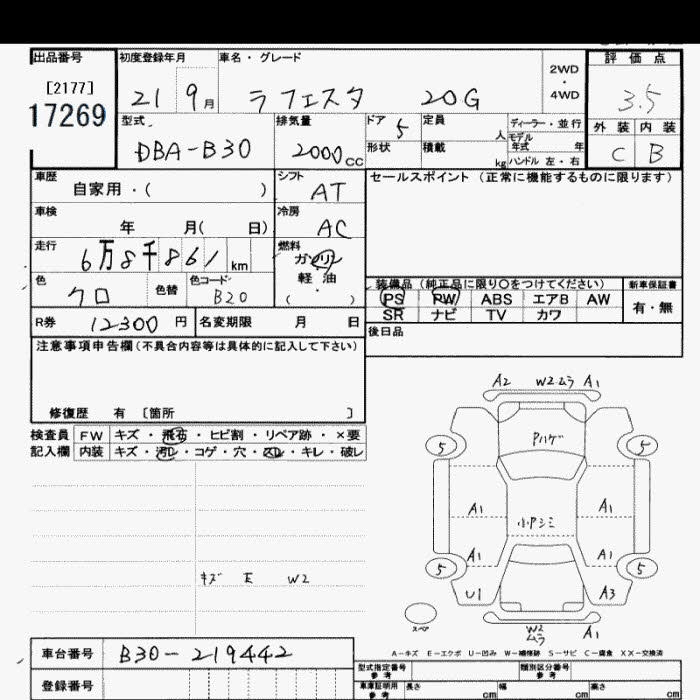 出品番号 初度登録年月 車名・グレード 評価点
[2177]
17269
21 9月 ラフェスタ 20G
2WD
・
4WD
3.5
型式 排気量 ドア 定員 ディーラー・並行 外装 内装
DBA-B30 2000cc 5 人 モデル年式 年 C B
形状 積載 kg ハンドル 左・右
車歴 シフト セールスポイント (正常に機能するものに限ります)
自家用・( ) AT
車検 冷房
年 月( 日) AC
走行 燃料
6万8千861km ガソリン
・
軽油
( )
色 色替 色コード 装備品(純正品に限り○をつけてください) 新車保証書
クロ B20 PS PW ABS エアB AW 有・無
SR ナビ TV カワ
R券 12300円 名変期限 月 日 後日品
注意事項申告欄(不具合内容等は具体的に記入して下さい)
修復歴 有 〔箇所 〕
検査員 FW キズ・飛石・ヒビ割・リペア跡・×要
記入欄 内装 キズ・汚れ・コゲ・穴・スレ・キレ・破レ
A2 W2ムラ A1
Pハゲ
5 5
A1 A1
小Pシミ
A1 A1
5 5
U1 A3
キズ E W2
スペア W2 ムラ A1
A-キズ E-エクボ U-凹み W-補修跡 S-サビ C-腐食 XX-交換済
車台番号 B30-219442
型式指定番号 参考 類別区分番号 参考
登録番号 車庫証明用 参考 長さ cm 幅 cm 高さ cm